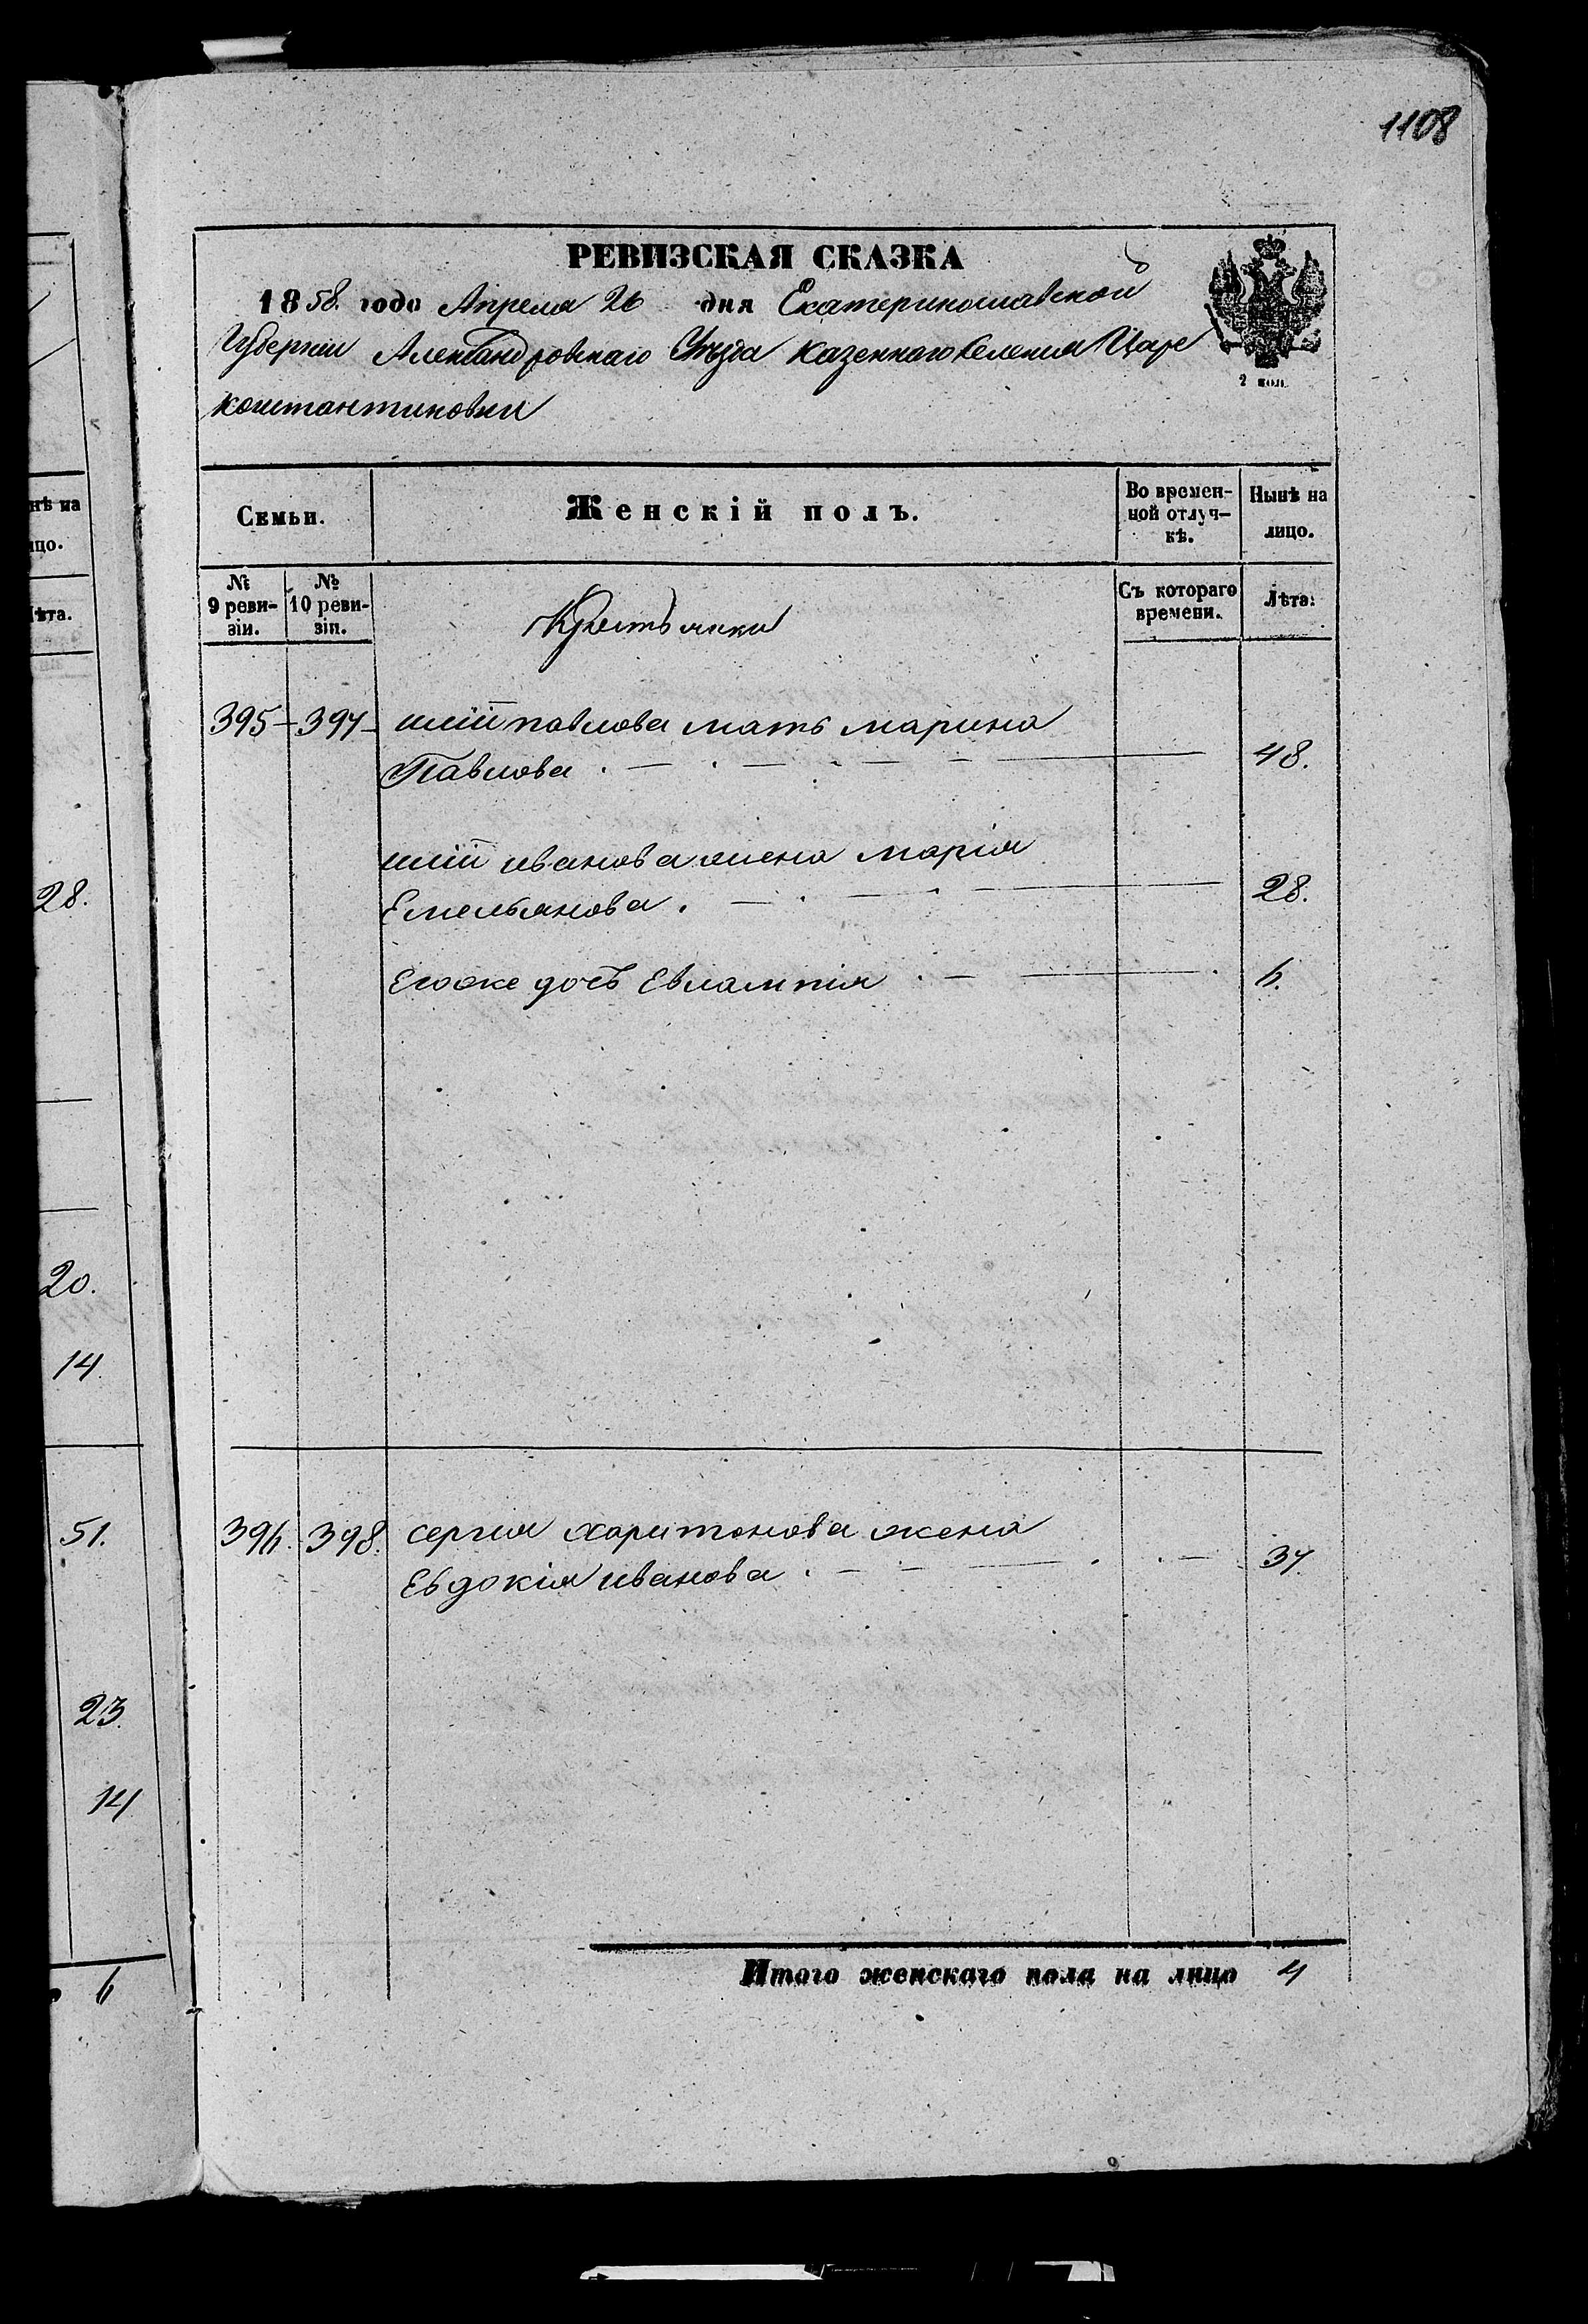 1108
РЕВИЗСКАЯ СКАЗКА
1858. года Апреля 26 дня Екатеринославской
Губернии Александровскаго Уѣзда казеннаго Селения Царе
константиновки
2 пол.
Семьи.
Женскій полъ.
Во времен-
ной отлуч-
кѣ.
Нынѣ на
лицо.
№
9 реви-
зіи.
№
10 реви-
зіи.
Крестьянки
Съ котораго
времени.
Лѣта.
395 - 397 - павлова мать марина
Павлова 48.
иванова жена марія
Емельянова. 28.
Егоже дочь Евлампія 6.
396. 398. сергия харитонова жена
Евдокія иванова 37.
Итого женскаго пола на лицо 4
нѣ на
ицо.
ѣта.
28.
20.
14.
51.
23.
14
6